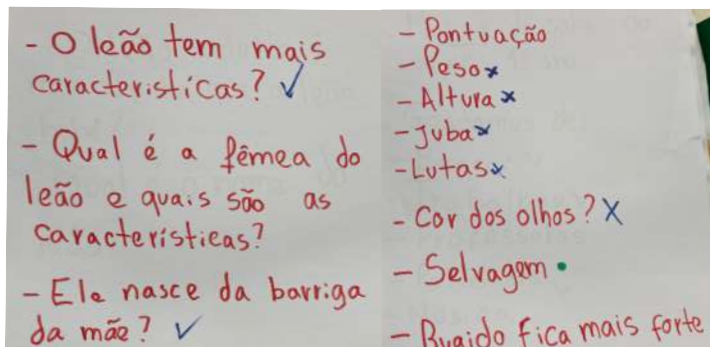 - O leão tem mais
caracteristicas? ✓
- Qual é a fêmea do
leão e quais são as
características?
- Ele nasce da barriga
da mãe? ✓
- Pontuação
- Peso x
- Altura x
- Juba x
- Lutas x
- Cor dos olhos? X
- Selvagem •
- Rugido fica mais forte